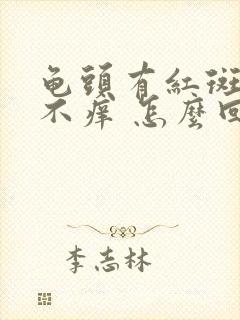 龟頭有紅斑
不痒 怎麼回
李志林